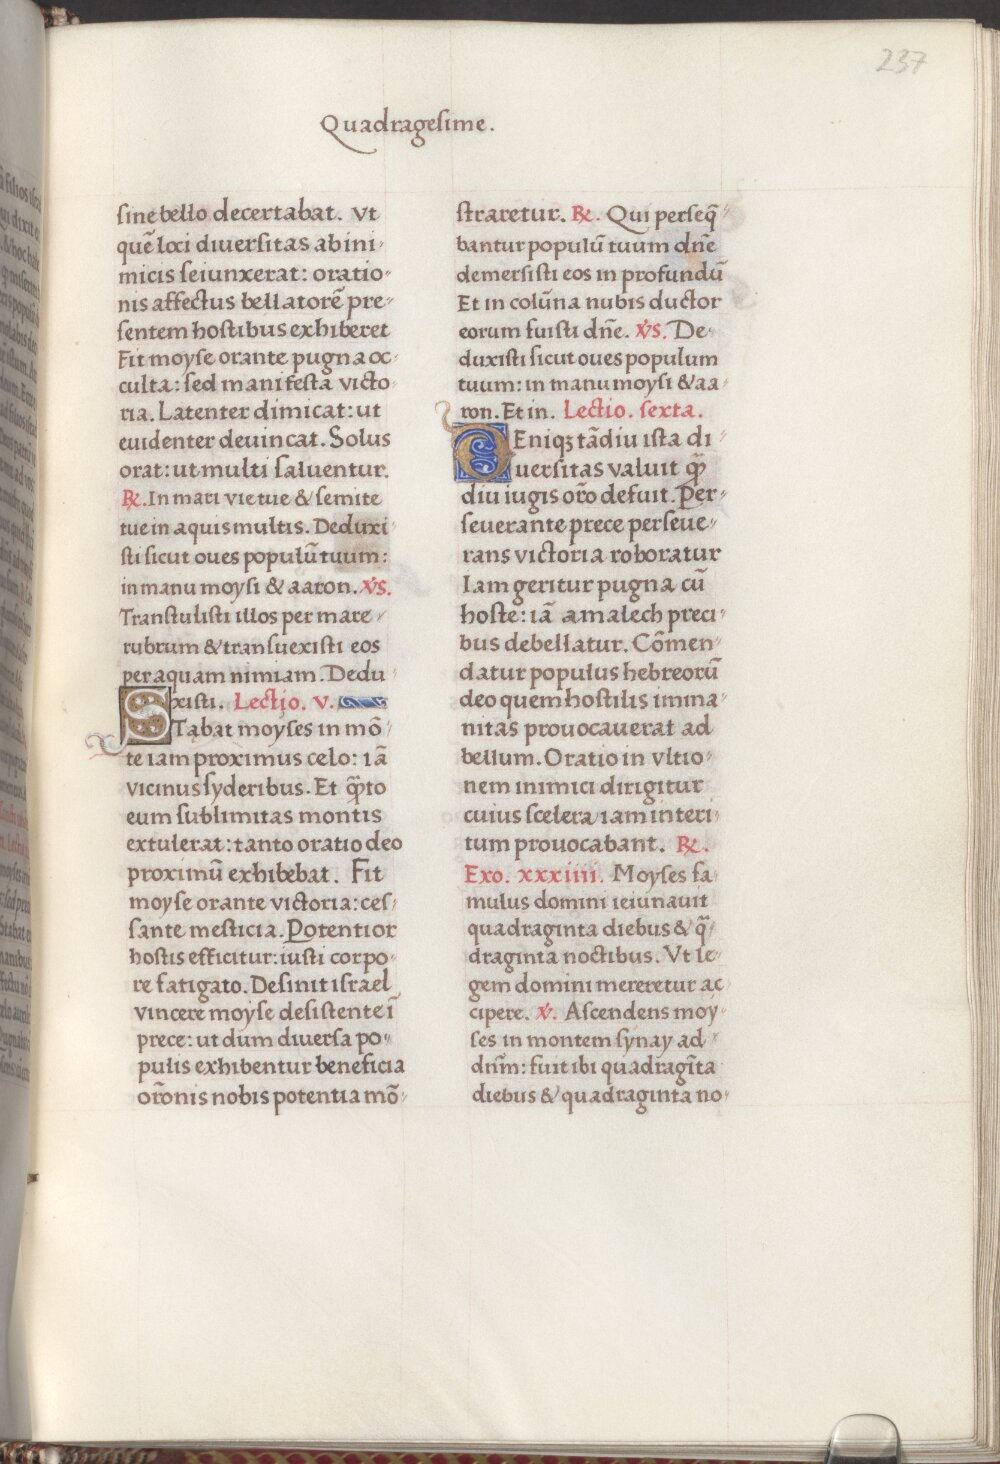 237
Quadragesime.
sine bello decertabat. Vt
quē loci diuersitas ab ini-
micis seiunxerat: oratio-
nis affectus bellatorē pre-
sentem hostibus exhiberet
Fit moyse orante pugna oc-
culta: sed manifesta victo-
ria. Latenter dimicat: ut
euidenter deuincat. Solus
orat: ut multi saluentur.
℟. In mari vie tue & semite
tue in aquis multis. Deduxi-
sti sicut oues populū tuum:
in manu moysi & aaron. v̇s.
Transtulisti illos per mare
rubrum & transuexisti eos
per aquam nimiam. Dedu
xisti. Lectio. v.
Stabat moyses in mō-
te iam proximus celo: iā
vicinus syderibus. Et q̄̃to
eum sublimitas montis
extulerat: tanto oratio deo
proximū exhibebat. Fit
moyse orante victoria: ces-
sante mesticia. Potentior
hostis efficitur: iusti corpo-
re fatigato. Desinit israel
vincere moyse desistente ī
prece: ut dum diuersa po-
pulis exhibentur beneficia
or̄onis nobis potentia mō-
straretur. ℟. Qui perseq̄-
bantur populū tuum dn̄e
demersisti eos in profundū
Et in colūna nubis ductor
eorum fuisti dn̄e. v̇s. De-
duxisti sicut oues populum
tuum: in manu moysi & aa-
ron. Et in. Lectio. sexta.
Deniqꝫ tādiu ista di-
uersitas valuit q̄̃
diu iugis or̄o defuit. Per-
seuerante prece perseue-
rans victoria roboratur
Iam geritur pugna cū
hoste: iā amalech preci-
bus debellatur. Cōmen-
datur populus hebreorū
deo quem hostilis imma-
nitas prouocauerat ad
bellum. Oratio in vltio-
nem inimici dirigitur
cuius scelera iam interi-
tum prouocabant. ℟.
Exo. xxxiiii. Moyses fa-
mulus domini ieiunauit
quadraginta diebus & q̄̃-
draginta noctibus. Vt le-
gem domini mereretur ac-
cipere. v̇. Ascendens moy-
ses in montem synay ad
dn̄m: fuit ibi quadragīta
diebus & quadraginta no-